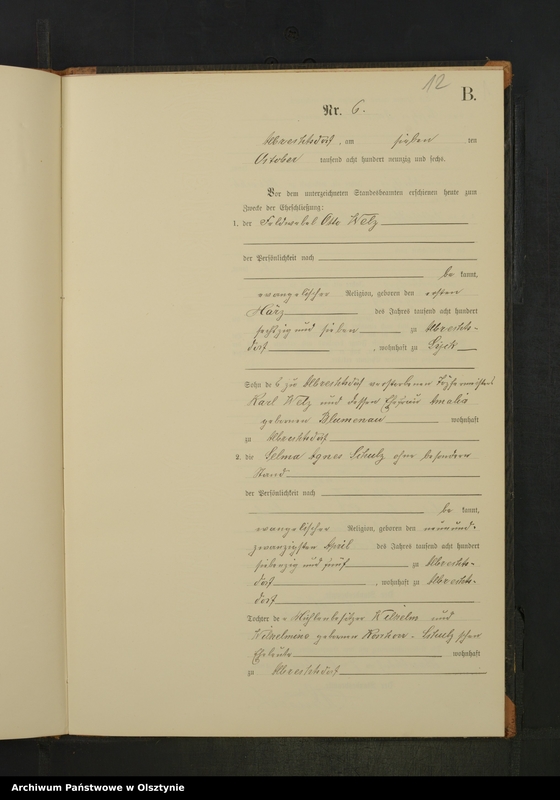 12
B.
Nr. 6.
Albrechtsdorf, am sieben ten
October tausend acht hundert neunzig und sechs.
Vor dem unterzeichneten Standesbeamten erschienen heute zum
Zwecke der Eheschließung:
1. der Feldwebel Otto Welz
der Persönlichkeit nach
be kannt,
evangelischer Religion, geboren den ersten
März des Jahres tausend acht hundert
sechzig und sieben zu Albrechts-
dorf, wohnhaft zu
Sohn des zu Albrechtsdorf verstorbenen Töpfermeisters
Karl Welz und dessen Ehefrau Amalia
geborenen Blumenau wohnhaft
zu Albrechtsdorf
2. die Selma Agnes Schulz ohne besonderen
Stand
der Persönlichkeit nach
be kannt,
evangelischer Religion, geboren den neunund-
zwanzigsten April des Jahres tausend acht hundert
siebenzig und fünf zu Albrechts-
dorf, wohnhaft zu Albrechts-
dorf
Tochter der Mühlenbesitzer Wilhelm und
Wilhelmine geborenen Schulz'schen
Eheleute wohnhaft
zu Albrechtsdorf
Archiwum Państwowe w Olsztynie